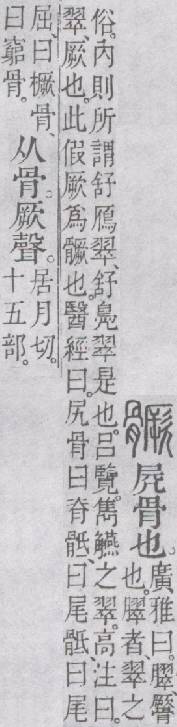 𩪗𡱂骨也。
廣雅曰。臎臋
也。臎者翠之
俗。內則所謂舒鴈翠、舒鳧翠是也。呂覽。雋觾之翠。高注曰。
翠、厥也。此假厥爲𩪗也。醫經曰。尻骨曰脊骶、曰尾骶、曰尾
屈、曰橛骨、
曰窮骨。
从骨。厥聲。
居月切。
十五部。